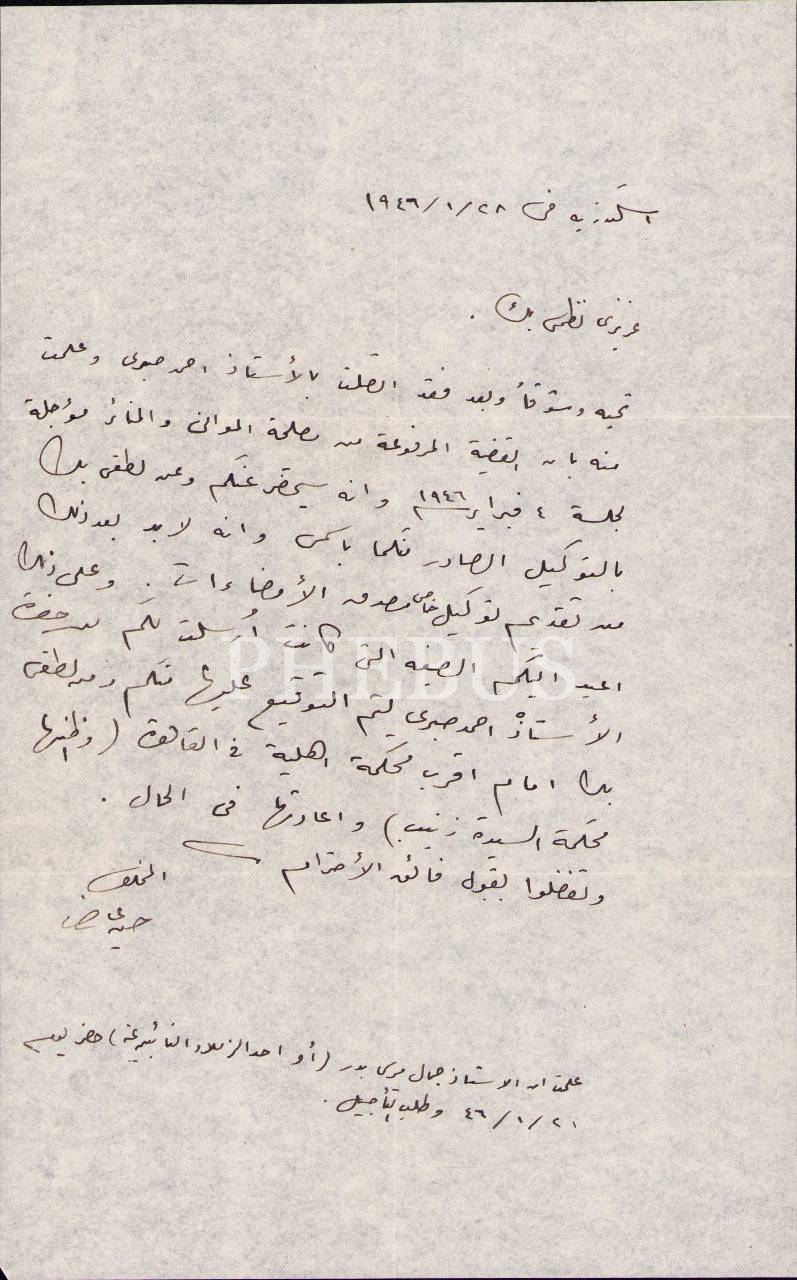 اسكندريه في ٢٨/١/١٩٤٦
عزيزى نظمى بك .
تحيه وشوقاً وبعد فقد اتصلت بالأستاذ احمد صبرى وعلمت
منه بان القضية المرفوعة من مصلحة الموانئ والمنائر مؤجلة
لجلسة ٤ فبراير ١٩٤٦ وانه سيحضر عنكم وعن لطفى بك
بالتوكيل الصادر منكما باسمى وانه لابد بعد ذلك
من تقديم توكيل خاص مصدق الأمضاءات . وعلى ذلك
اعيد اليكم الصيغه التى كانت أرسلت لكم من حضرة
الأستاذ احمد صبرى ليتم التوقيع عليها منكم ومن لطفى
بك امام اقرب محكمة اهلية فى القاهرة (واظنها
محكمة السيدة زينب) واعادتها فى الحال .
وتفضلوا بقبول فائق الأحترام
المخلص
PHEBUS
علمت ان الاستاذ جمال مرسى بدر (أو احد الزملاء النائبين عنه) حضر يوم
٢١/١/٤٦ وطلب التأجيل .